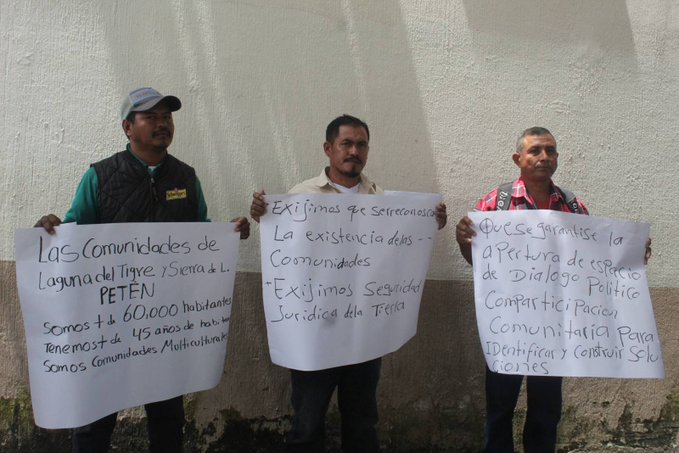 Las Comunidades de
Laguna del Tigre y Sierra de L.
PETÉN
Somos + de 60,000 habitantes
Tenemos + de 45 años de habitar
Somos Comunidades Multiculturales
Exijimos que se rreconosca
La existencia de las --
Comunidades
+Exijimos Seguridad
Juridica de la Tierra
Que se garantise la
apertura de espacio
de Dialogo Político
Comparticipacion
Comunitaria para
IDentificar y construir Solu
ciones